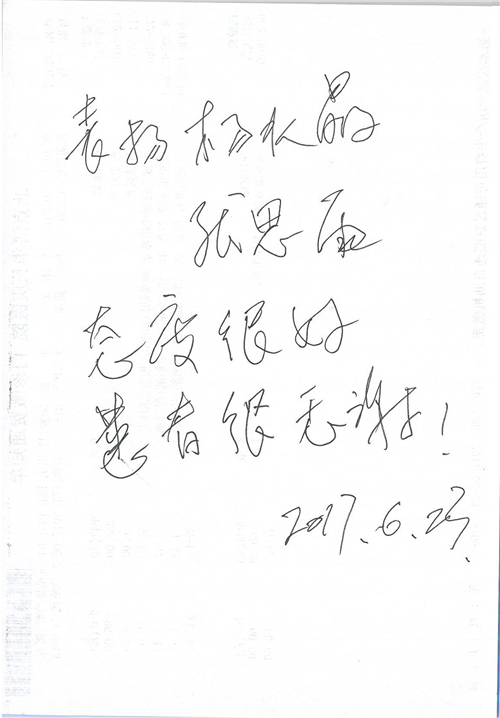 表扬杨水晶
张思雨
态度很好
患者很感谢!
2017.6.23.